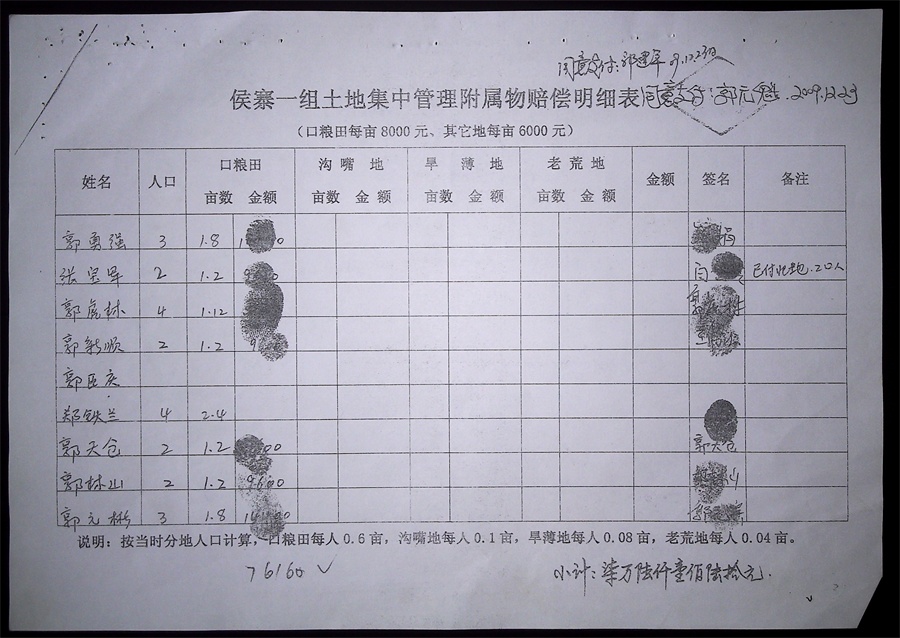 同意支付：郭建军 09.12.23日
侯寨一组土地集中管理附属物赔偿明细表 同意支付：郭元魁. 2009.12.23
（口粮田每亩8000元、其它地每亩6000元）
姓名 人口 口粮田 沟嘴地 旱薄地 老荒地 金额 签名 备注
亩数 金额 亩数 金额 亩数 金额 亩数 金额
郭勇强 3 1.8
张 2 1.2 已付 20人
郭虎林 4 1.12
郭新顺 2 1.2
郭臣庆
郑铁兰 4 2.4
郭天仓 2 1.2 郭天仓
郭林山 2 1.2 9600
郭元彬 3 1.8
说明：按当时分地人口计算，口粮田每人0.6亩，沟嘴地每人0.1亩，旱薄地每人0.08亩，老荒地每人0.04亩。
76160 ✓ 小计：柒万陆仟壹佰陆拾元.